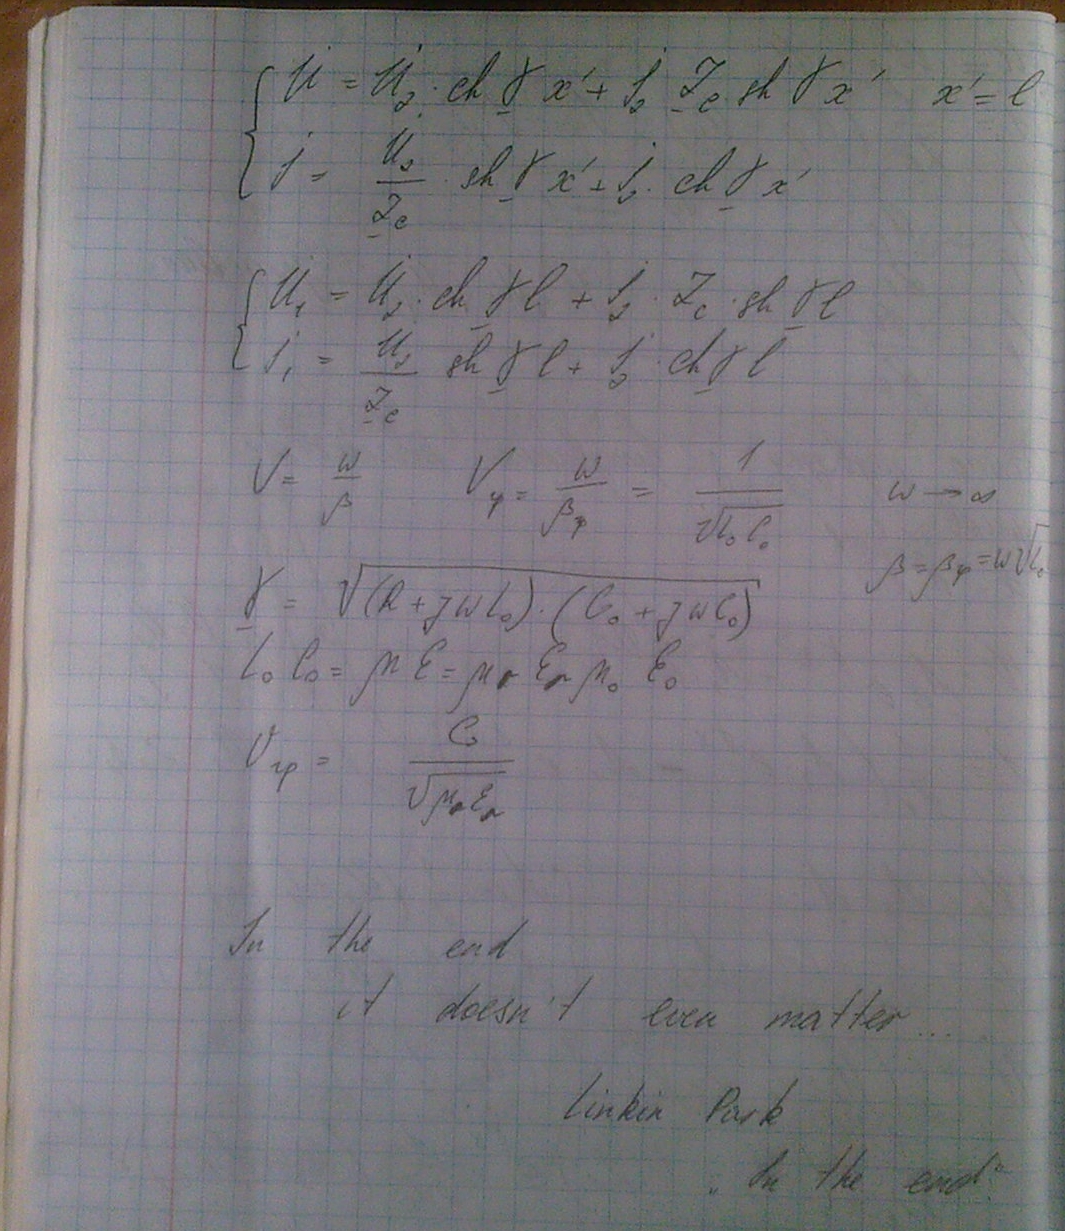 U̇ = U̇₂ · ch γ x' + İ₂ Z_c sh γ x'   x' = l
İ = U̇₂/Z_c · sh γ x' + İ₂ · ch γ x'
U̇₁ = U̇₂ · ch γl + İ₂ · Z_c · sh γl
İ₁ = U̇₂/Z_c sh γl + İ₂ · ch γl
V = ω/β   V_φ = ω/β_φ = 1/√(L₀C₀)   ω → ∞
β = β_φ = ω√L₀
γ = √((R + jωL₀) · (G₀ + jωC₀))
L₀C₀ = με = μr εr μ₀ ε₀
V_гр = C₀/√(μr εr)
In the end
it doesn't even matter...
Linkin Park
„In the end"